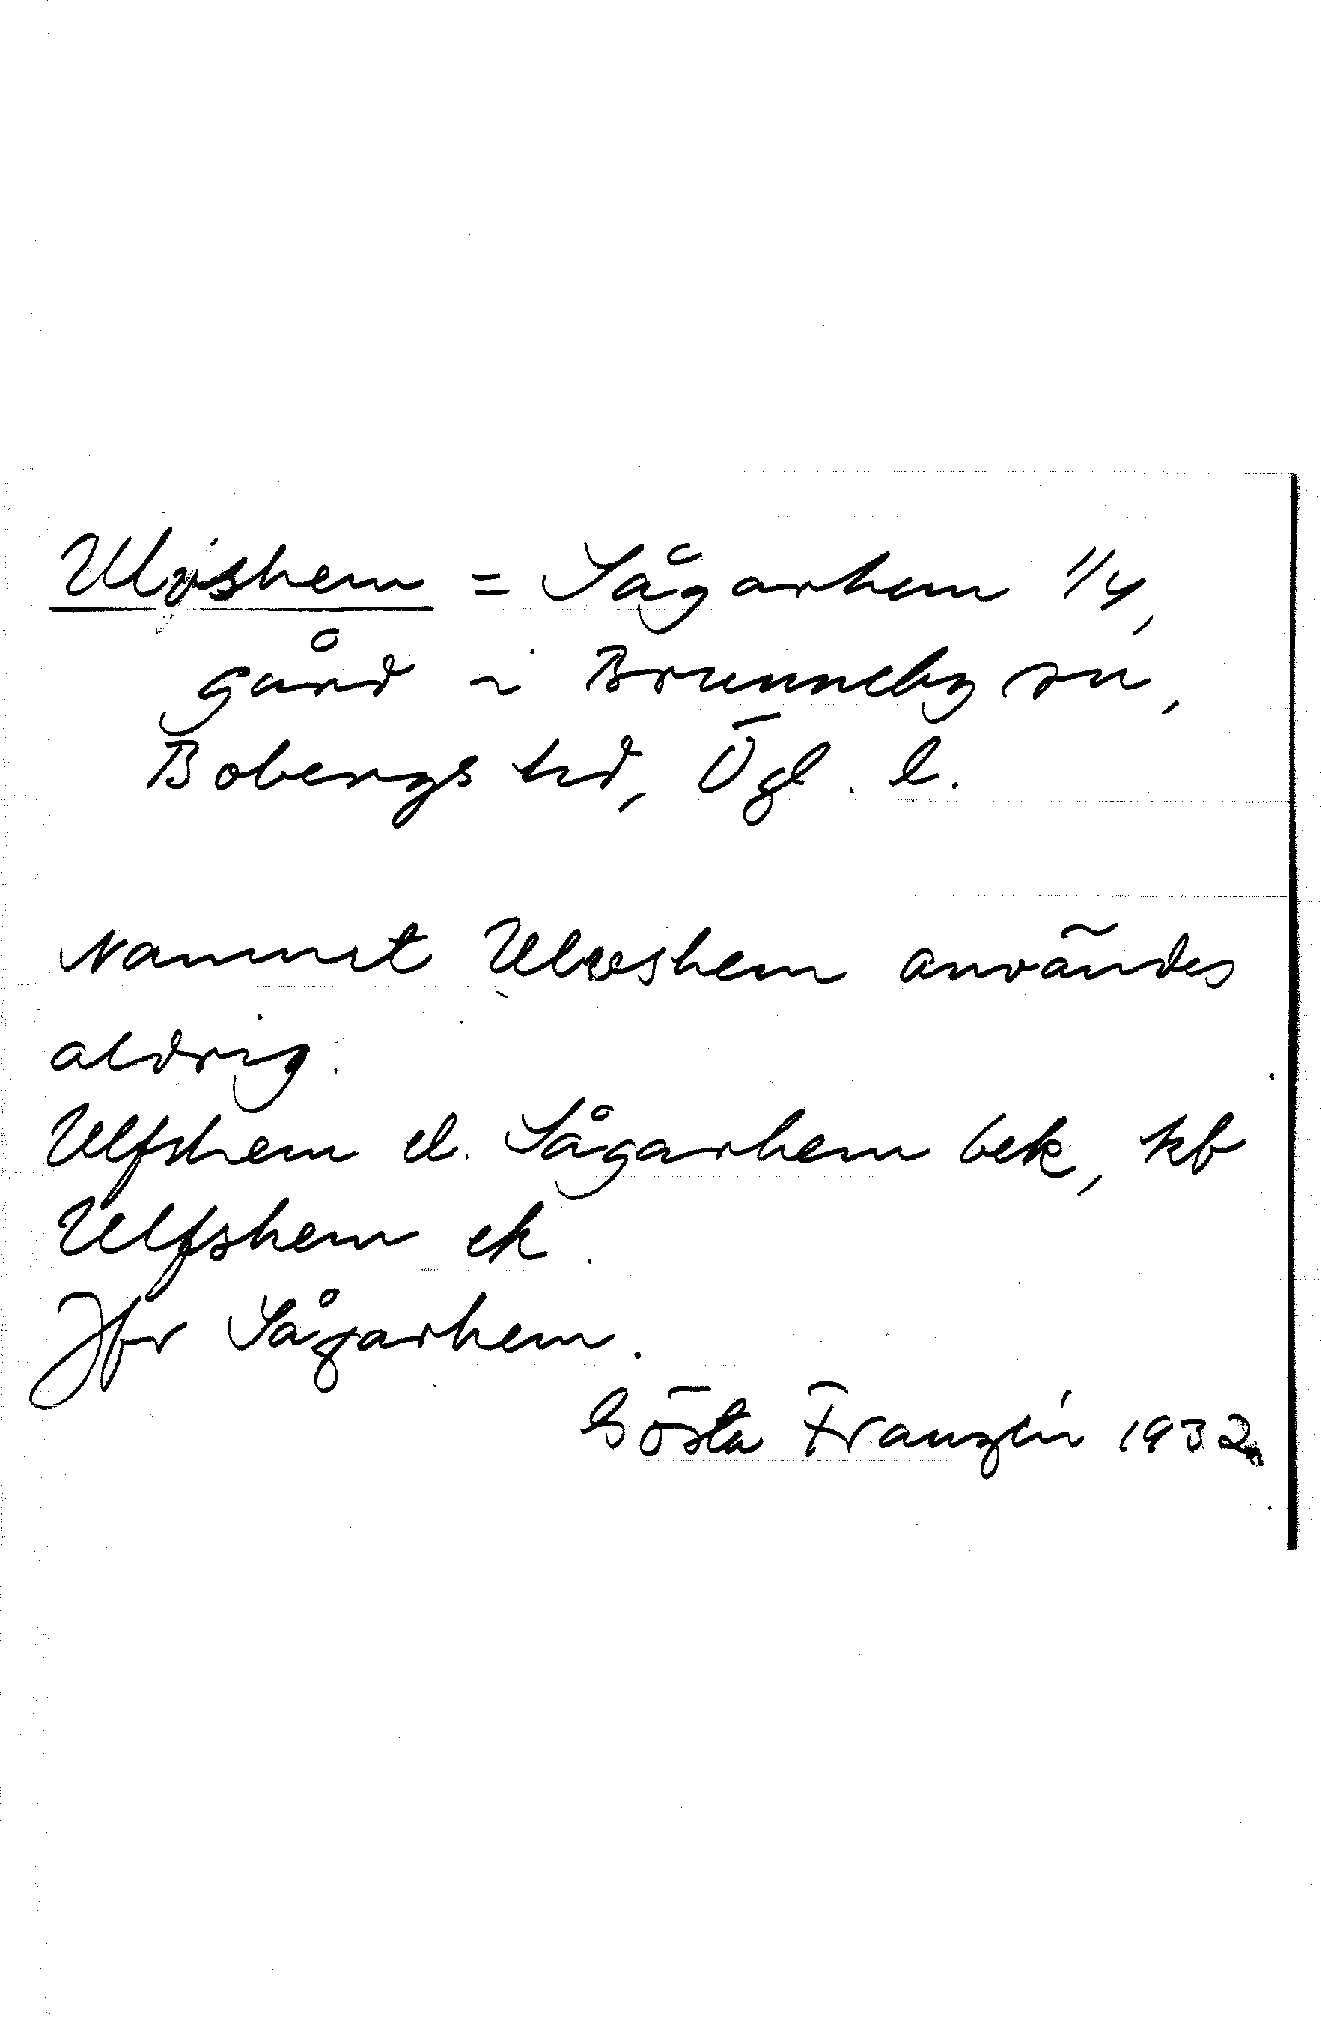 Ulvshem = Sågarhem 1/4,
gård i Brunneby sn,
Bobergs hd, Ögl. l.
Namnet Ulvshem användes
aldrig.
Ulfshem el. Sågarhem bek, kb
Ulfshem ek.
Jfr Sågarhem.
Gösta Franzén 1932